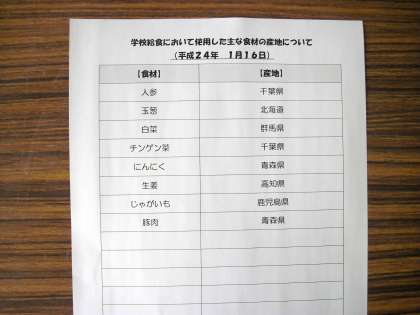 学校給食において使用した主な食材の産地について
（平成２４年　１月１６日）
【食材】 【産地】
人参 千葉県
玉葱 北海道
白菜 群馬県
チンゲン菜 千葉県
にんにく 青森県
生姜 高知県
じゃがいも 鹿児島県
豚肉 青森県